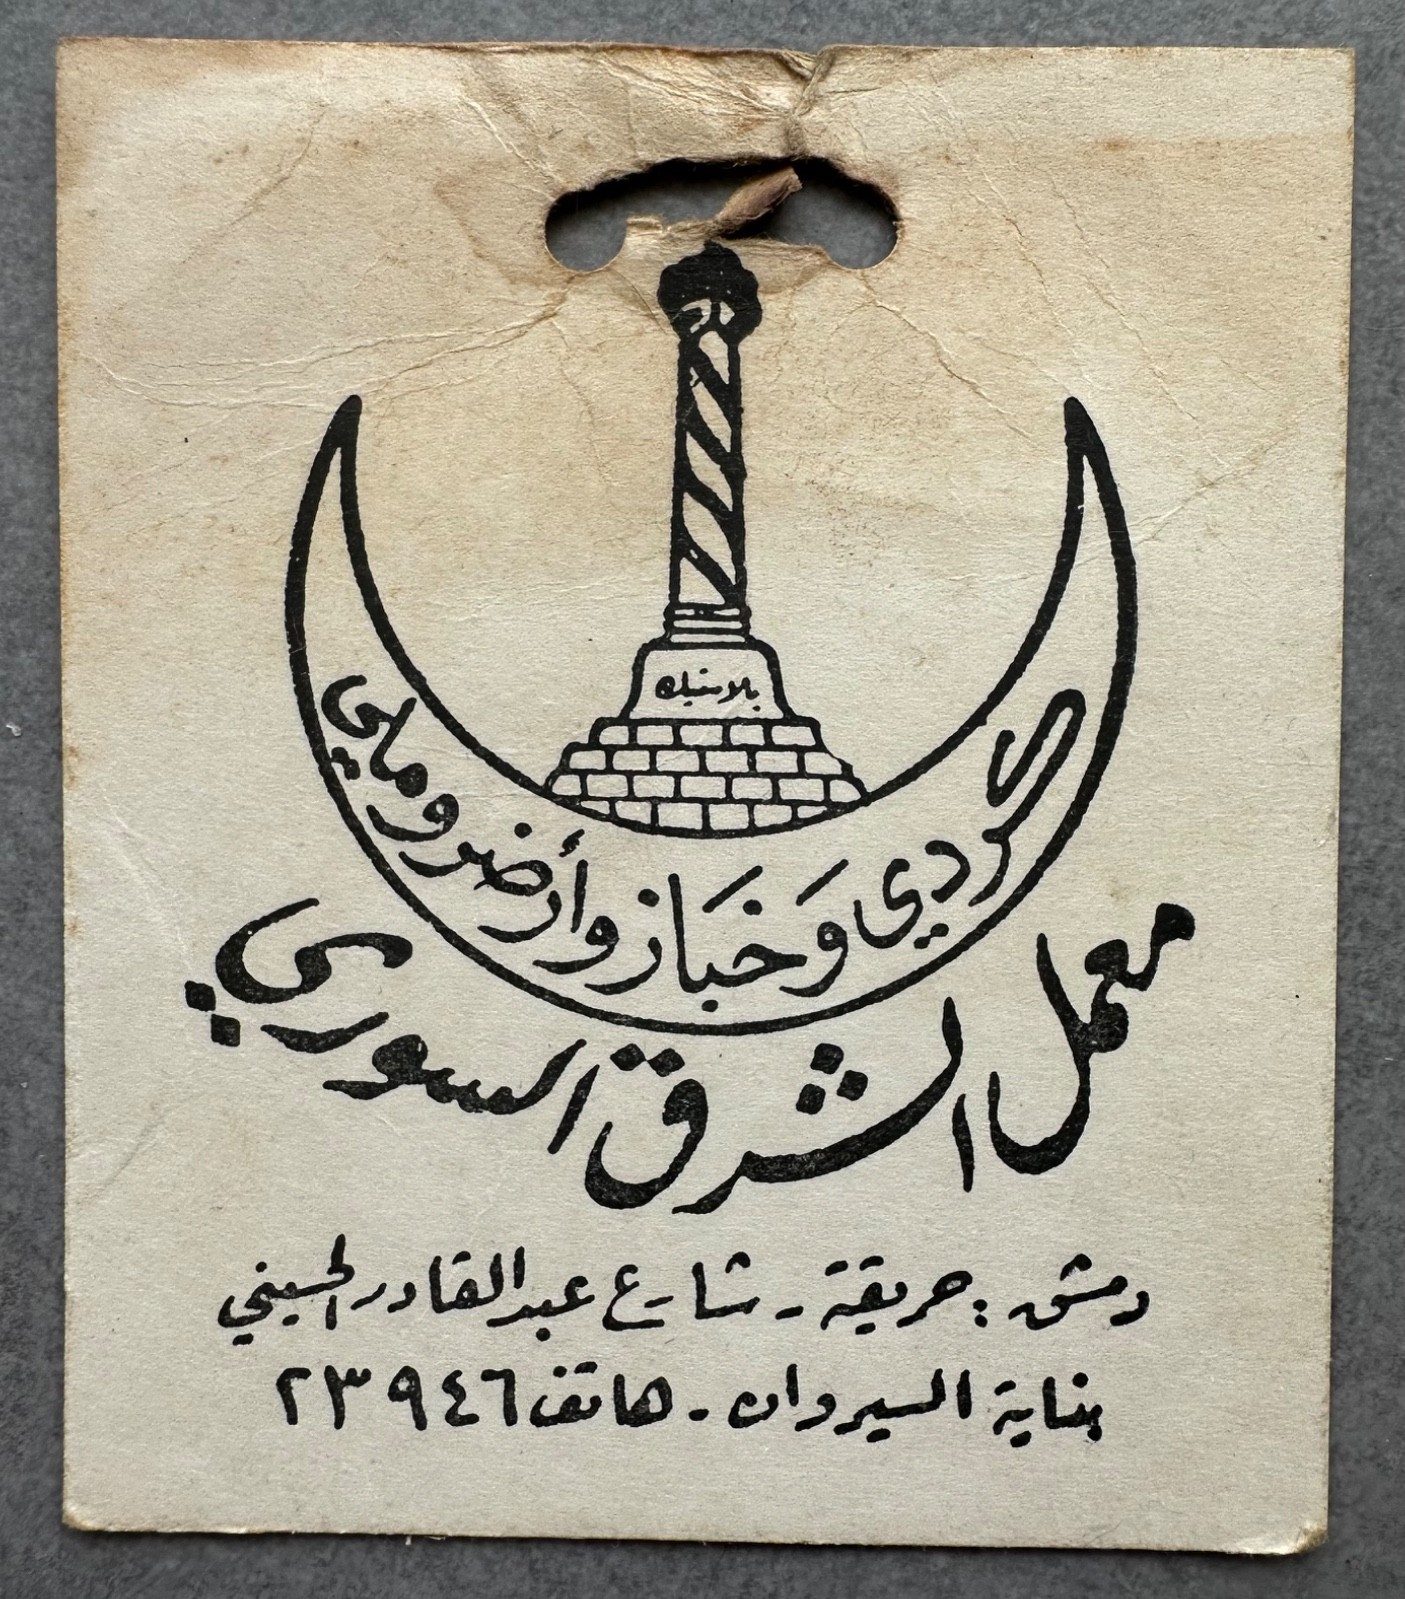 بلاستيك
كردي وَخبَاز وأرضروملي
معمل الشرق السوري
دمشق : حريقة - شارع عبد القادر الحسيني
بناية السيروان - هاتف ٢٣٩٤٦